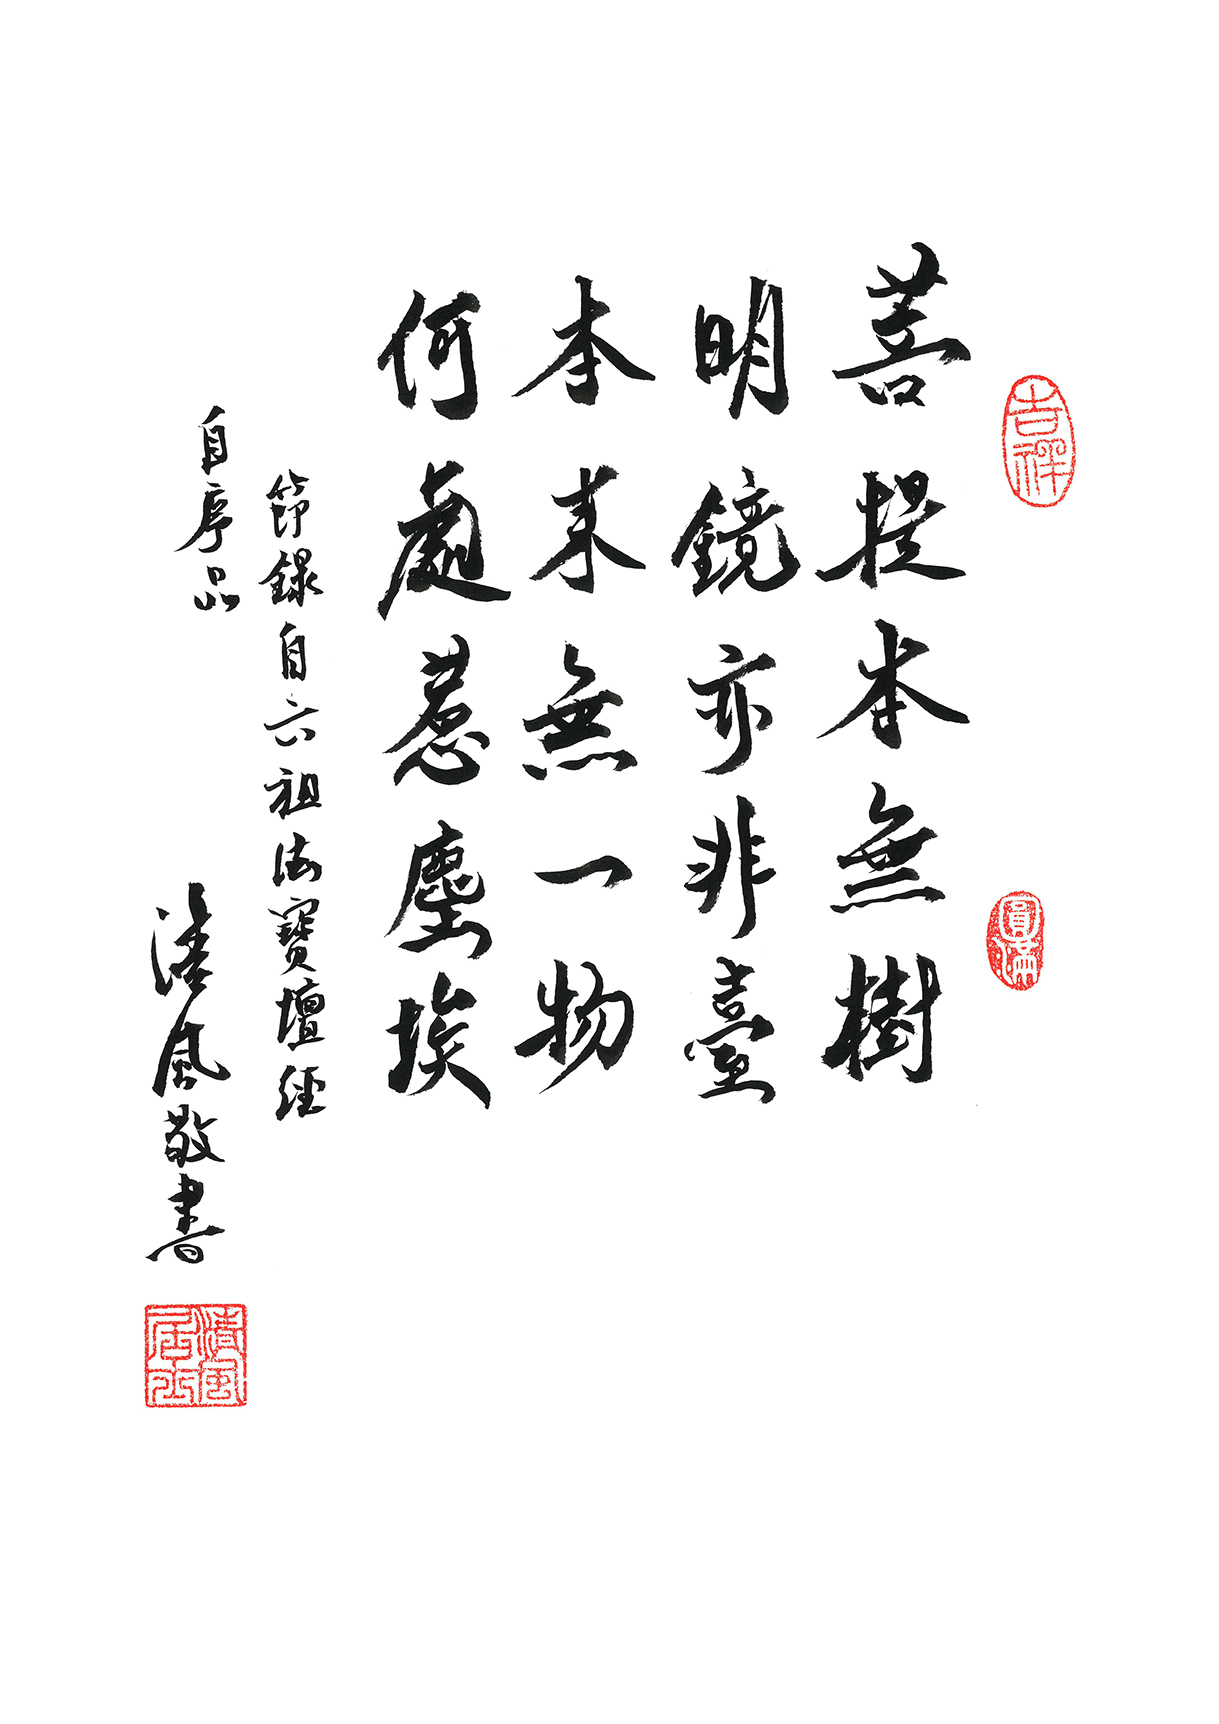 菩提本無樹
明鏡亦非臺
本來無一物
何處惹塵埃
節錄自六祖法寶壇經
自序品
清風敬書
吉祥
圓滿
清風居士